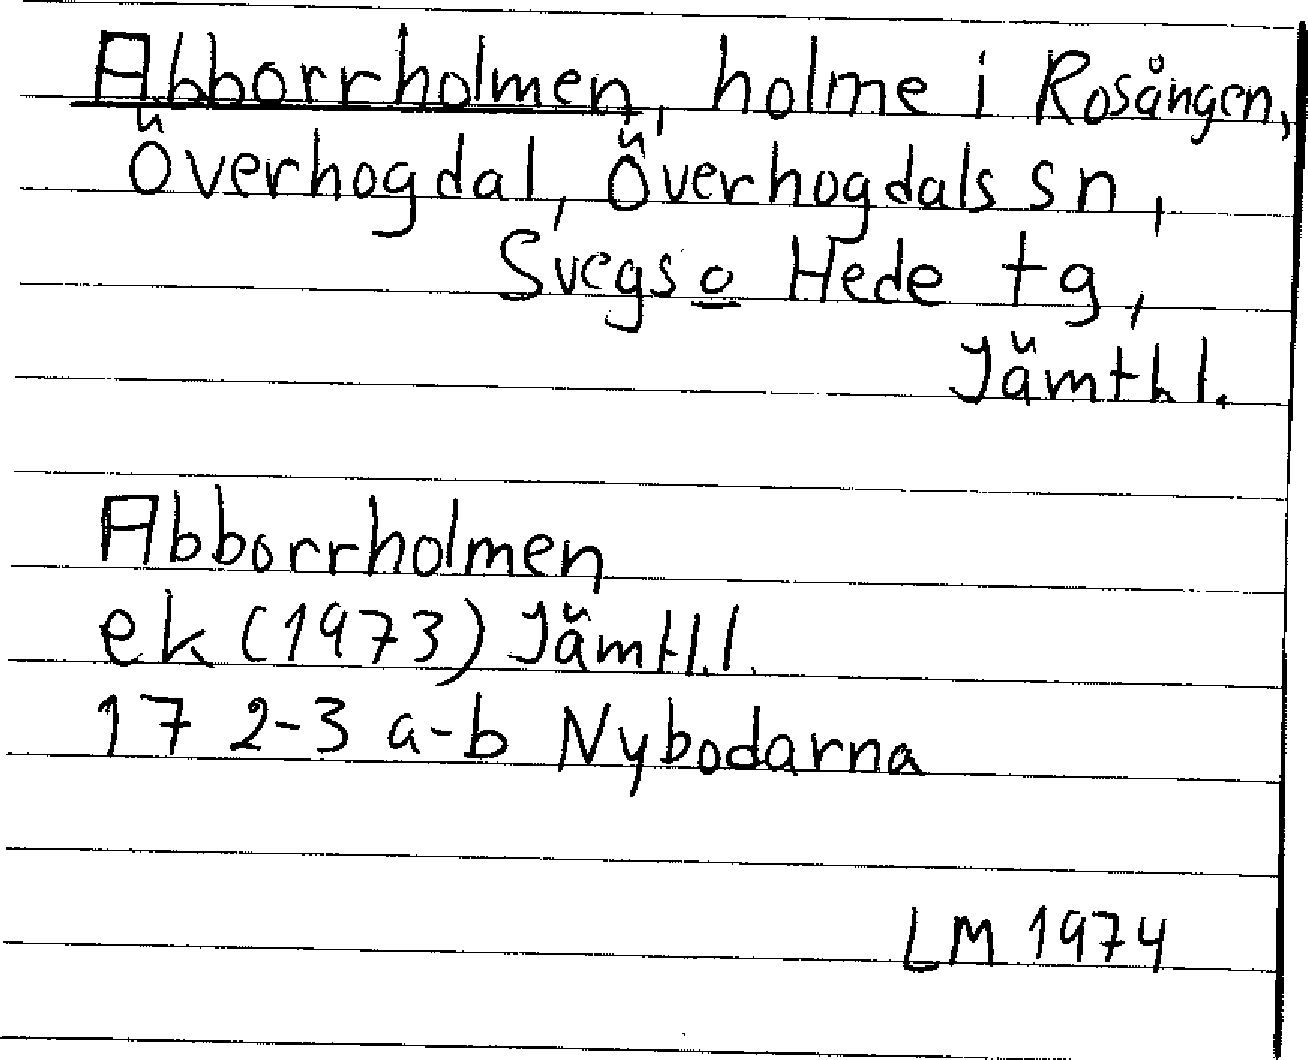 Abborrholmen, holme i Rosången,
Överhogdal, Överhogdals sn,
Svegs o Hede tg,
Jämthl.
Abborrholmen
ek (1973) Jämtl.l.
17 2-3 a-b Nybodarna
LM 1974